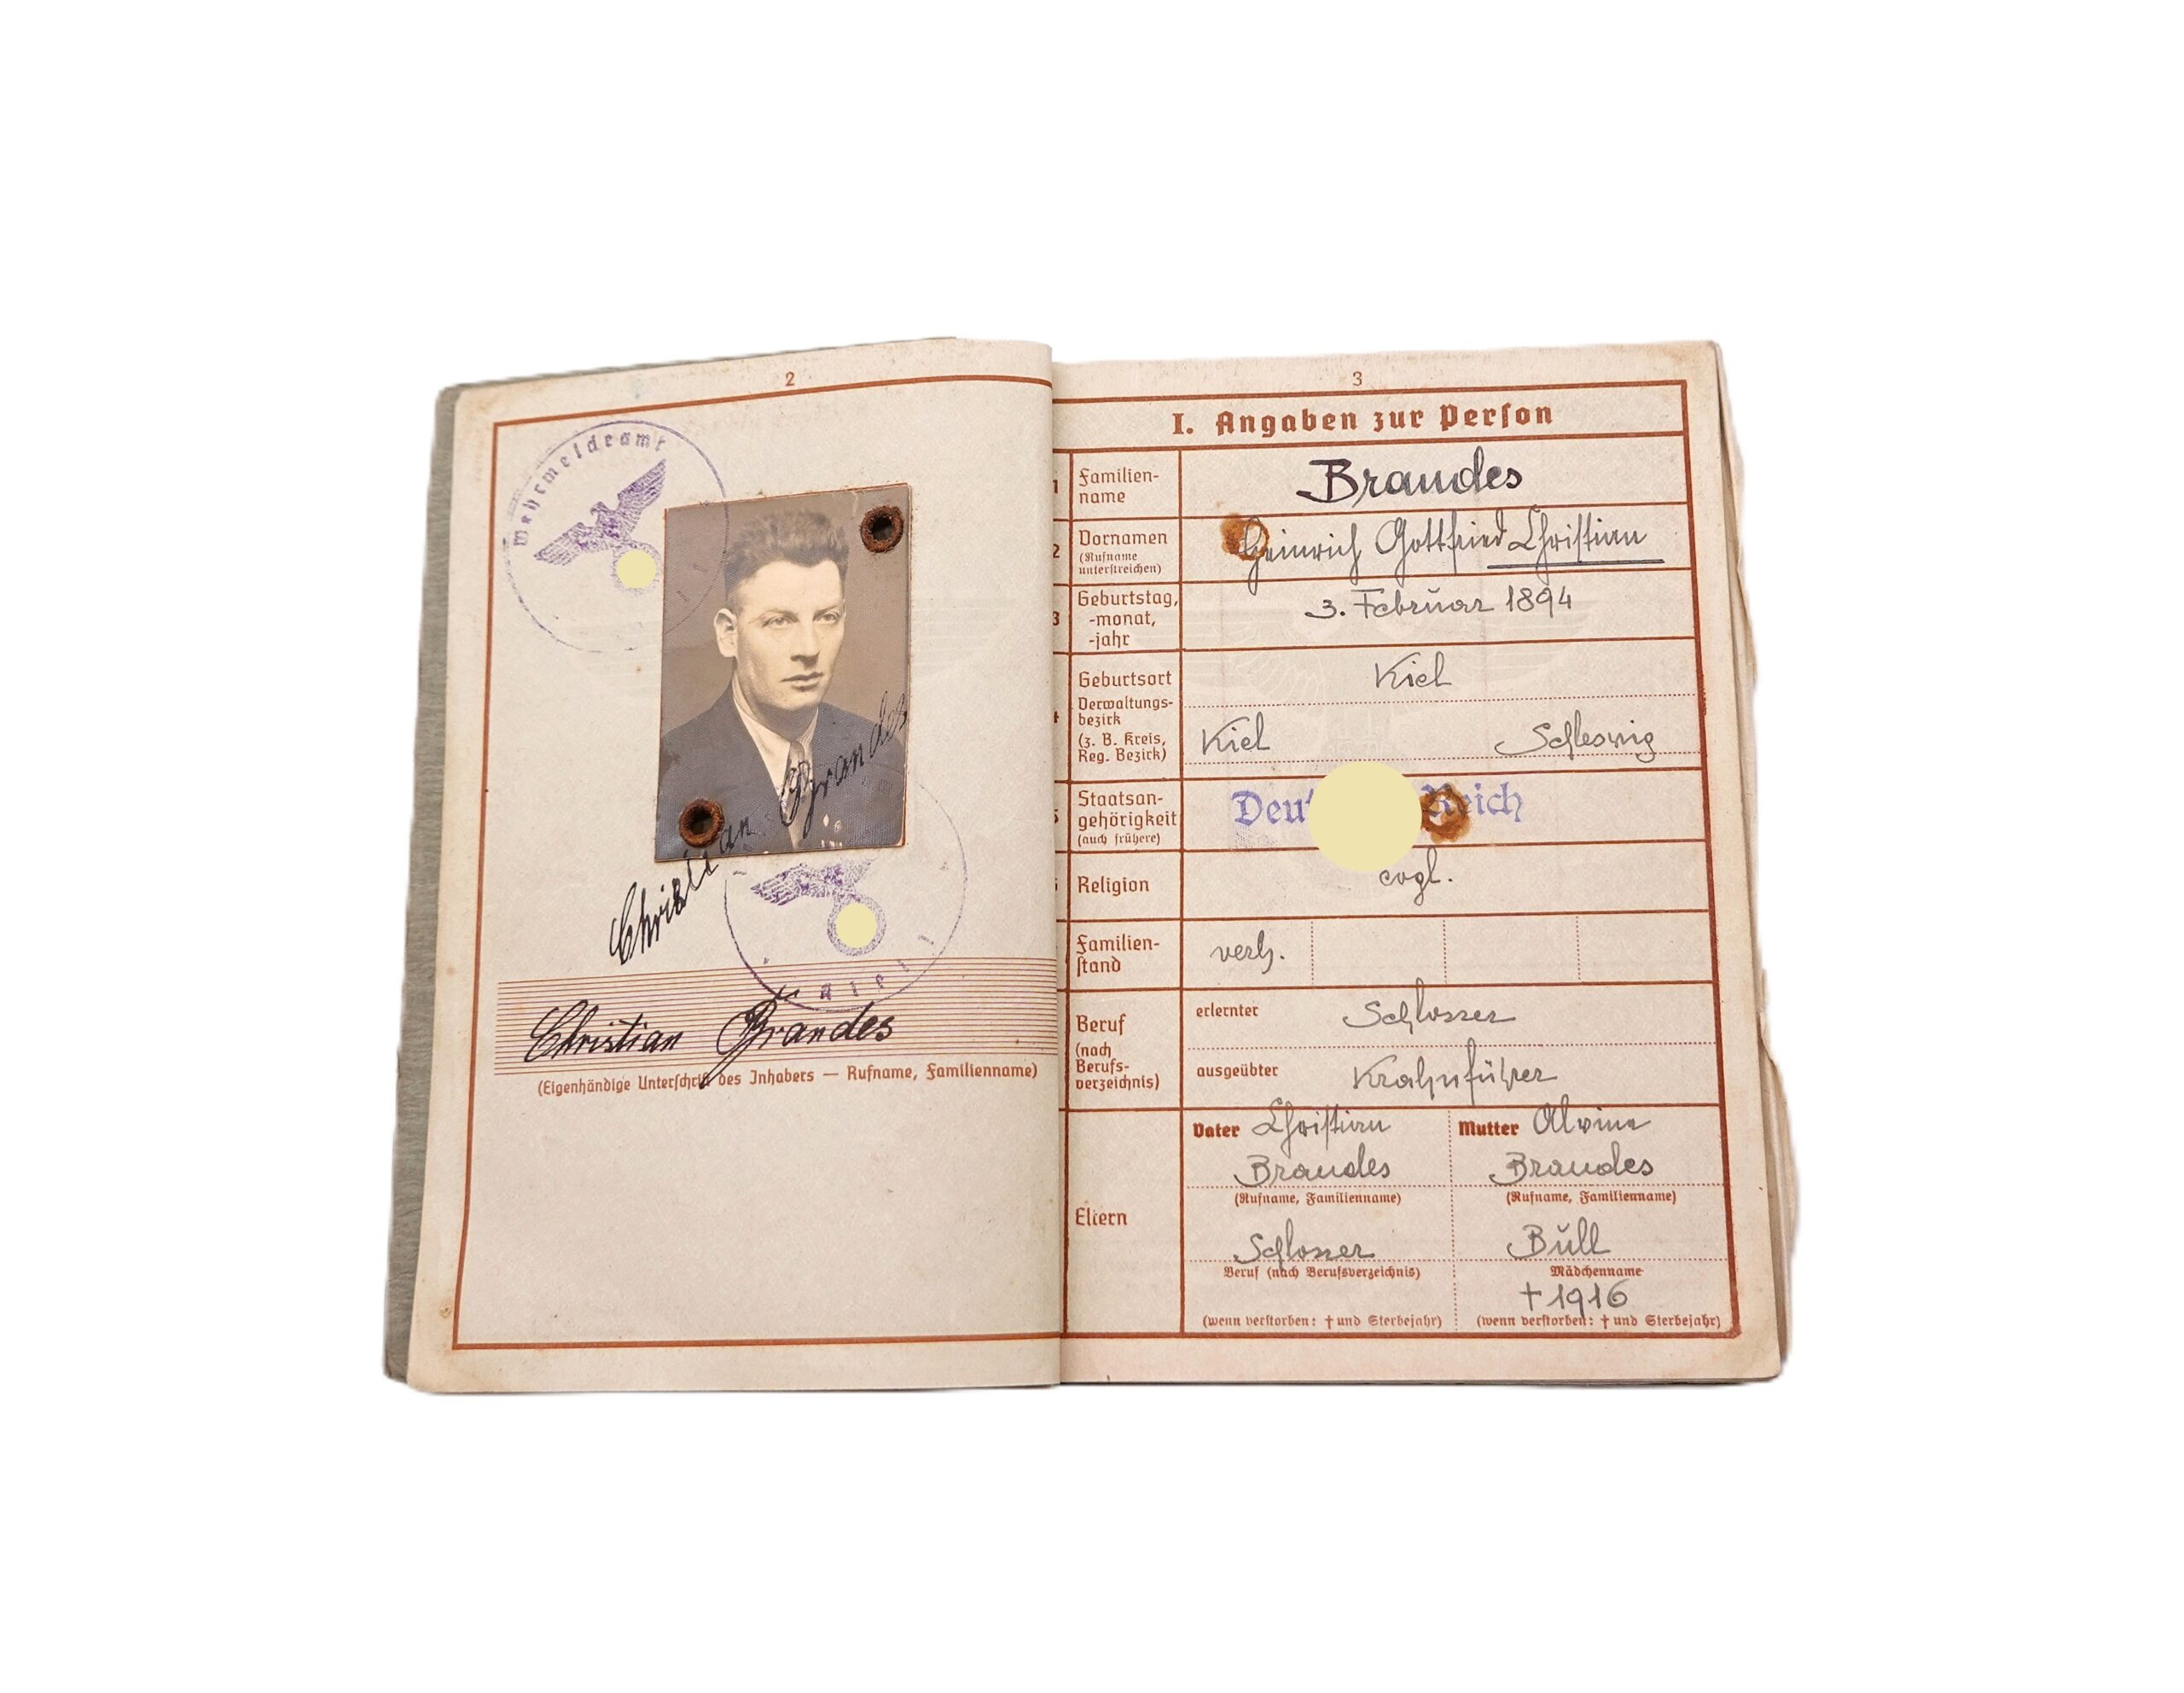 2
Wehrmeldeamt
Christian Brandes
Kiel
Christian Brandes
(Eigenhändige Unterschrift des Inhabers — Rufname, Familienname)
3
I. Angaben zur Perſon
1 Familien-
name
Brandes
2 Vornamen
(Rufname
unterſtreichen)
Heinrich Gottfried Chriſtian
3 Geburtstag,
-monat,
-jahr
3. Februar 1894
Geburtsort
Kiel
Verwaltungs-
bezirk
(z. B. Kreis,
Reg. Bezirk)
Kiel Schleswig
5 Staatsan-
gehörigkeit
(auch frühere)
Deut Reich
Religion
evgl.
Familien-
ſtand
verh.
Beruf
(nach
Berufs-
verzeichnis)
erlernter Schlosser
ausgeübter Krahnführer
Eltern
Vater Chriſtian
Brandes
(Rufname, Familienname)
Schlosser
Beruf (nach Berufsverzeichnis)
(wenn verſtorben: † und Sterbejahr)
Mutter Alvine
Brandes
(Rufname, Familienname)
Büll
Mädchenname
† 1916
(wenn verſtorben: † und Sterbejahr)